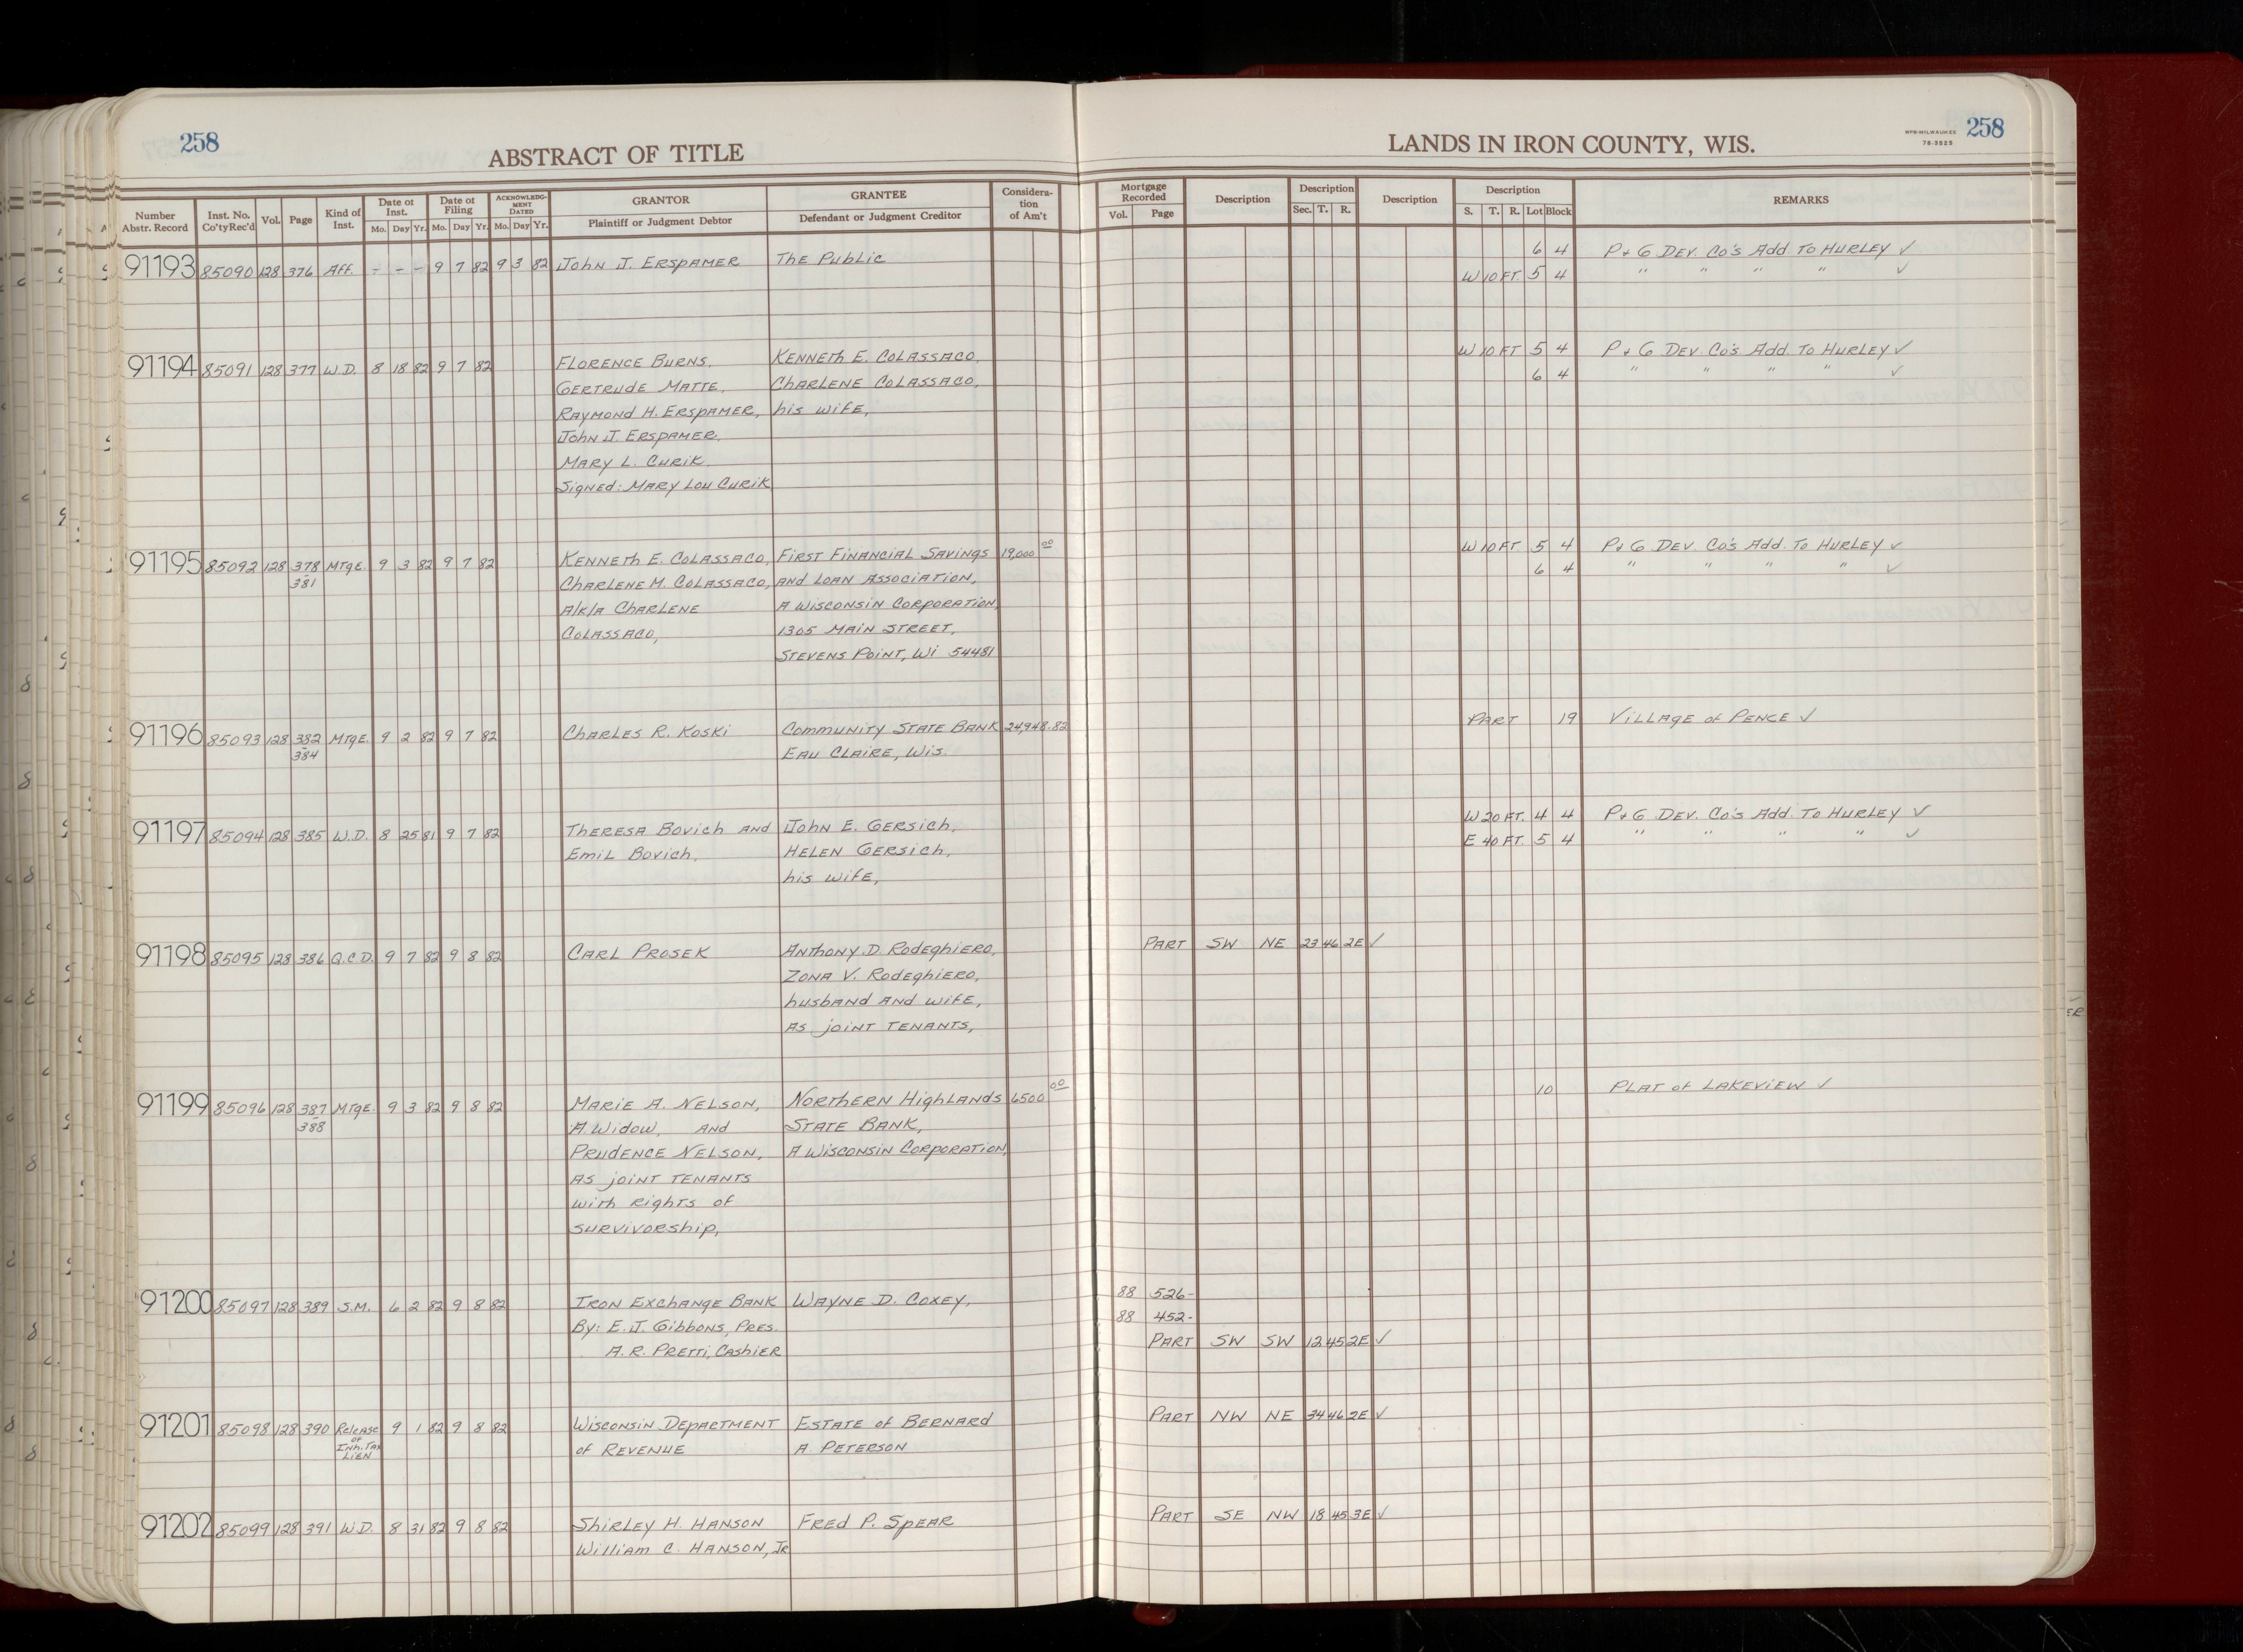 258
ABSTRACT OF TITLE
LANDS IN IRON COUNTY, WIS.
WPB-MILWAUKEE
76-3525
258
Number Abstr. Record
Inst. No. Co'ty Rec'd
Vol.
Page
Kind of Inst.
Date of Inst. Mo. Day Yr.
Date of Filing Mo. Day Yr.
ACKNOWLEDG-MENT DATED Mo. Day Yr.
GRANTOR
Plaintiff or Judgment Debtor
GRANTEE
Defendant or Judgment Creditor
Considera-tion of Am't
Mortgage Recorded Vol. Page
Description
Description Sec. T. R.
Description
Description S. T. R. Lot Block
REMARKS
91193 85090 128 376 Aff. - - - 9 7 82 9 3 82 John J. Erspamer The Public 6 4 P + G Dev. Co's Add. To Hurley ✓
W 10 FT. 5 4 " " " " ✓
91194 85091 128 377 W.D. 8 18 82 9 7 82 Florence Burns, Kenneth E. Colassaco, W 10 FT 5 4 P + G Dev. Co's Add. To Hurley ✓
Gertrude Matte, Charlene Colassaco, 6 4 " " " " ✓
Raymond H. Erspamer, his wife,
John J. Erspamer,
Mary L. Curik
Signed: Mary Lou Curik
91195 85092 128 378 Mtge. 9 3 82 9 7 82 Kenneth E. Colassaco, First Financial Savings 19,000 00 W 10 FT. 5 4 P + G Dev. Co's Add. To Hurley ✓
- 381 Charlene M. Colassaco, and Loan Association, 6 4 " " " " ✓
A/K/A Charlene A Wisconsin Corporation,
Colassaco, 1305 Main Street,
Stevens Point, Wi 54481
91196 85093 128 382 Mtge. 9 2 82 9 7 82 Charles R. Koski Community State Bank 24,948.82 Part 19 Village of Pence ✓
- 384 Eau Claire, Wis.
91197 85094 128 385 W.D. 8 25 81 9 7 82 Theresa Bovich and John E. Gersich, W 20 FT. 4 4 P + G Dev. Co's Add. To Hurley ✓
Emil Bovich, Helen Gersich, E 40 FT. 5 4 " " " " ✓
his wife,
91198 85095 128 386 Q.C.D. 9 7 82 9 8 82 Carl Prosek Anthony D. Rodeghiero, Part SW NE 23 46 2E ✓
Zona V. Rodeghiero,
husband and wife,
as joint tenants,
91199 85096 128 387 Mtge. 9 3 82 9 8 82 Marie A. Nelson, Northern Highlands 6500 00 10 Plat of Lakeview ✓
- 388 A Widow, and State Bank,
Prudence Nelson, A Wisconsin Corporation,
as joint tenants
with rights of
survivorship,
91200 85097 128 389 S.M. 6 2 82 9 8 82 Iron Exchange Bank Wayne D. Coxey, 88 526-
By: E. J. Gibbons, Pres. 88 452-
A. R. Pretti, Cashier Part SW SW 12 45 2E ✓
91201 85098 128 390 Release 9 1 82 9 8 82 Wisconsin Department Estate of Bernard Part NW NE 34 46 2E ✓
of Inh. Tax Lien of Revenue A. Peterson
91202 85099 128 391 W.D. 8 31 82 9 8 82 Shirley H. Hanson Fred P. Spear Part SE NW 18 45 3E ✓
William C. Hanson, Jr